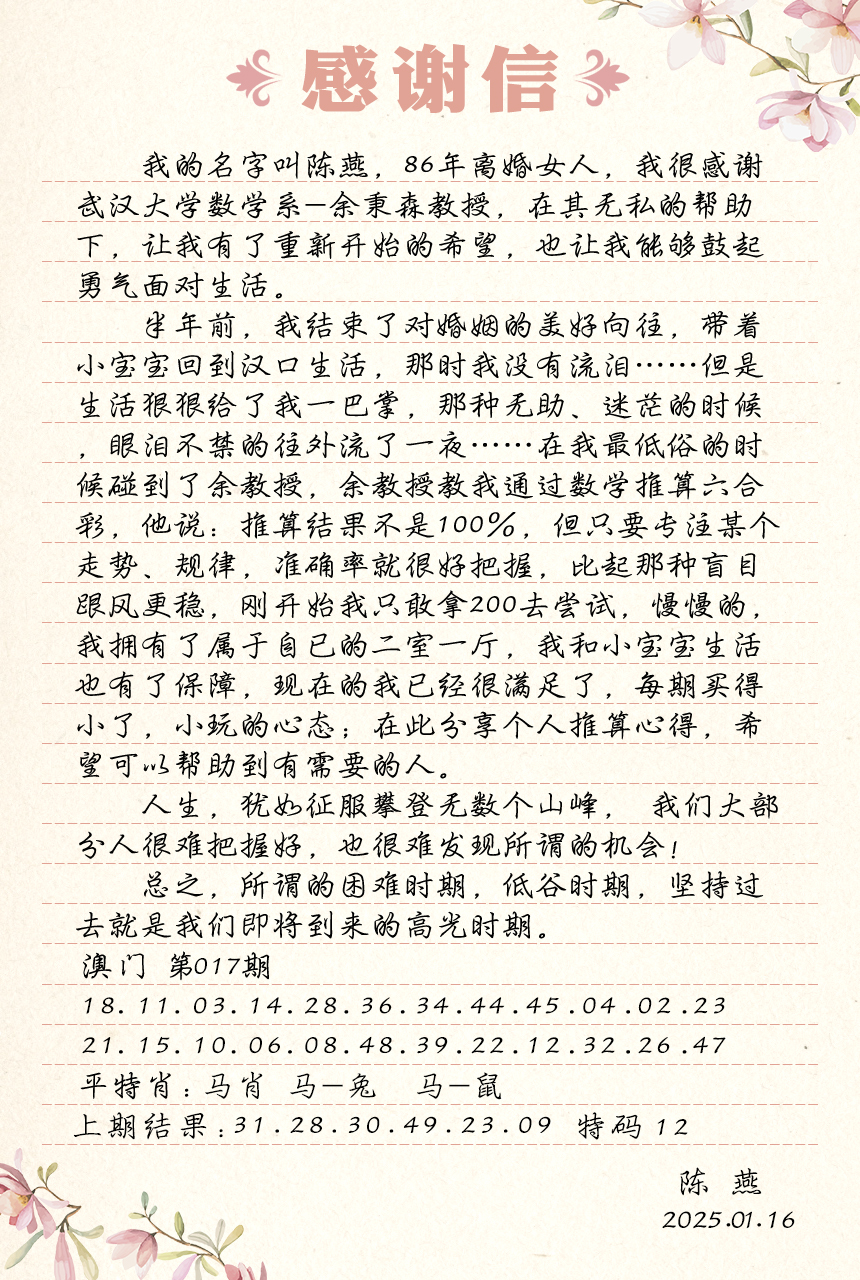 感谢信
我的名字叫陈燕，86年离婚女人，我很感谢
武汉大学数学系—余秉森教授，在其无私的帮助
下，让我有了重新开始的希望，也让我能够鼓起
勇气面对生活。
半年前，我结束了对婚姻的美好向往，带着
小宝宝回到汉口生活，那时我没有流泪……但是
生活狠狠给了我一巴掌，那种无助、迷茫的时候
，眼泪不禁的往外流了一夜……在我最低俗的时
候碰到了余教授，余教授教我通过数学推算六合
彩，他说：推算结果不是100%，但只要专注某个
走势、规律，准确率就很好把握，比起那种盲目
跟风更稳，刚开始我只敢拿200去尝试，慢慢的，
我拥有了属于自已的二室一厅，我和小宝宝生活
也有了保障，现在的我已经很满足了，每期买得
小了，小玩的心态；在此分享个人推算心得，希
望可以帮助到有需要的人。
人生，犹如征服攀登无数个山峰， 我们大部
分人很难把握好，也很难发现所谓的机会！
总之，所谓的困难时期，低谷时期，坚持过
去就是我们即将到来的高光时期。
澳门 第017期
18.11.03.14.28.36.34.44.45.04.02.23
21.15.10.06.08.48.39.22.12.32.26.47
平特肖：马肖 马—兔 马—鼠
上期结果：31.28.30.49.23.09 特码 12
陈 燕
2025.01.16